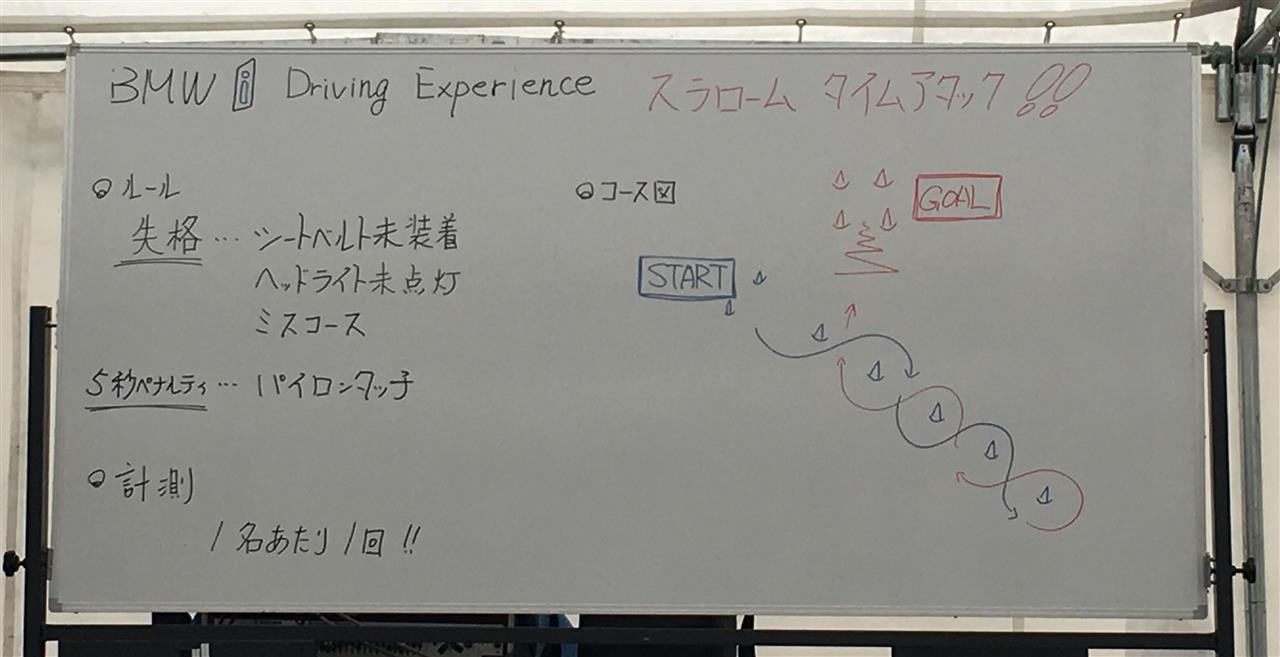 BMW i Driving Experience スラローム タイムアタック!!
◎ルール
失格… シートベルト未装着
ヘッドライト未点灯
ミスコース
5秒ペナルティ… パイロンタッチ
◎計測
1名あたり1回!!
◎コース図
GOAL
START